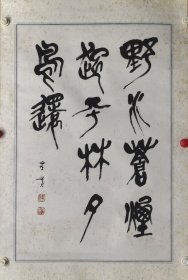 野水蒼煙
起平林夕
鳥還